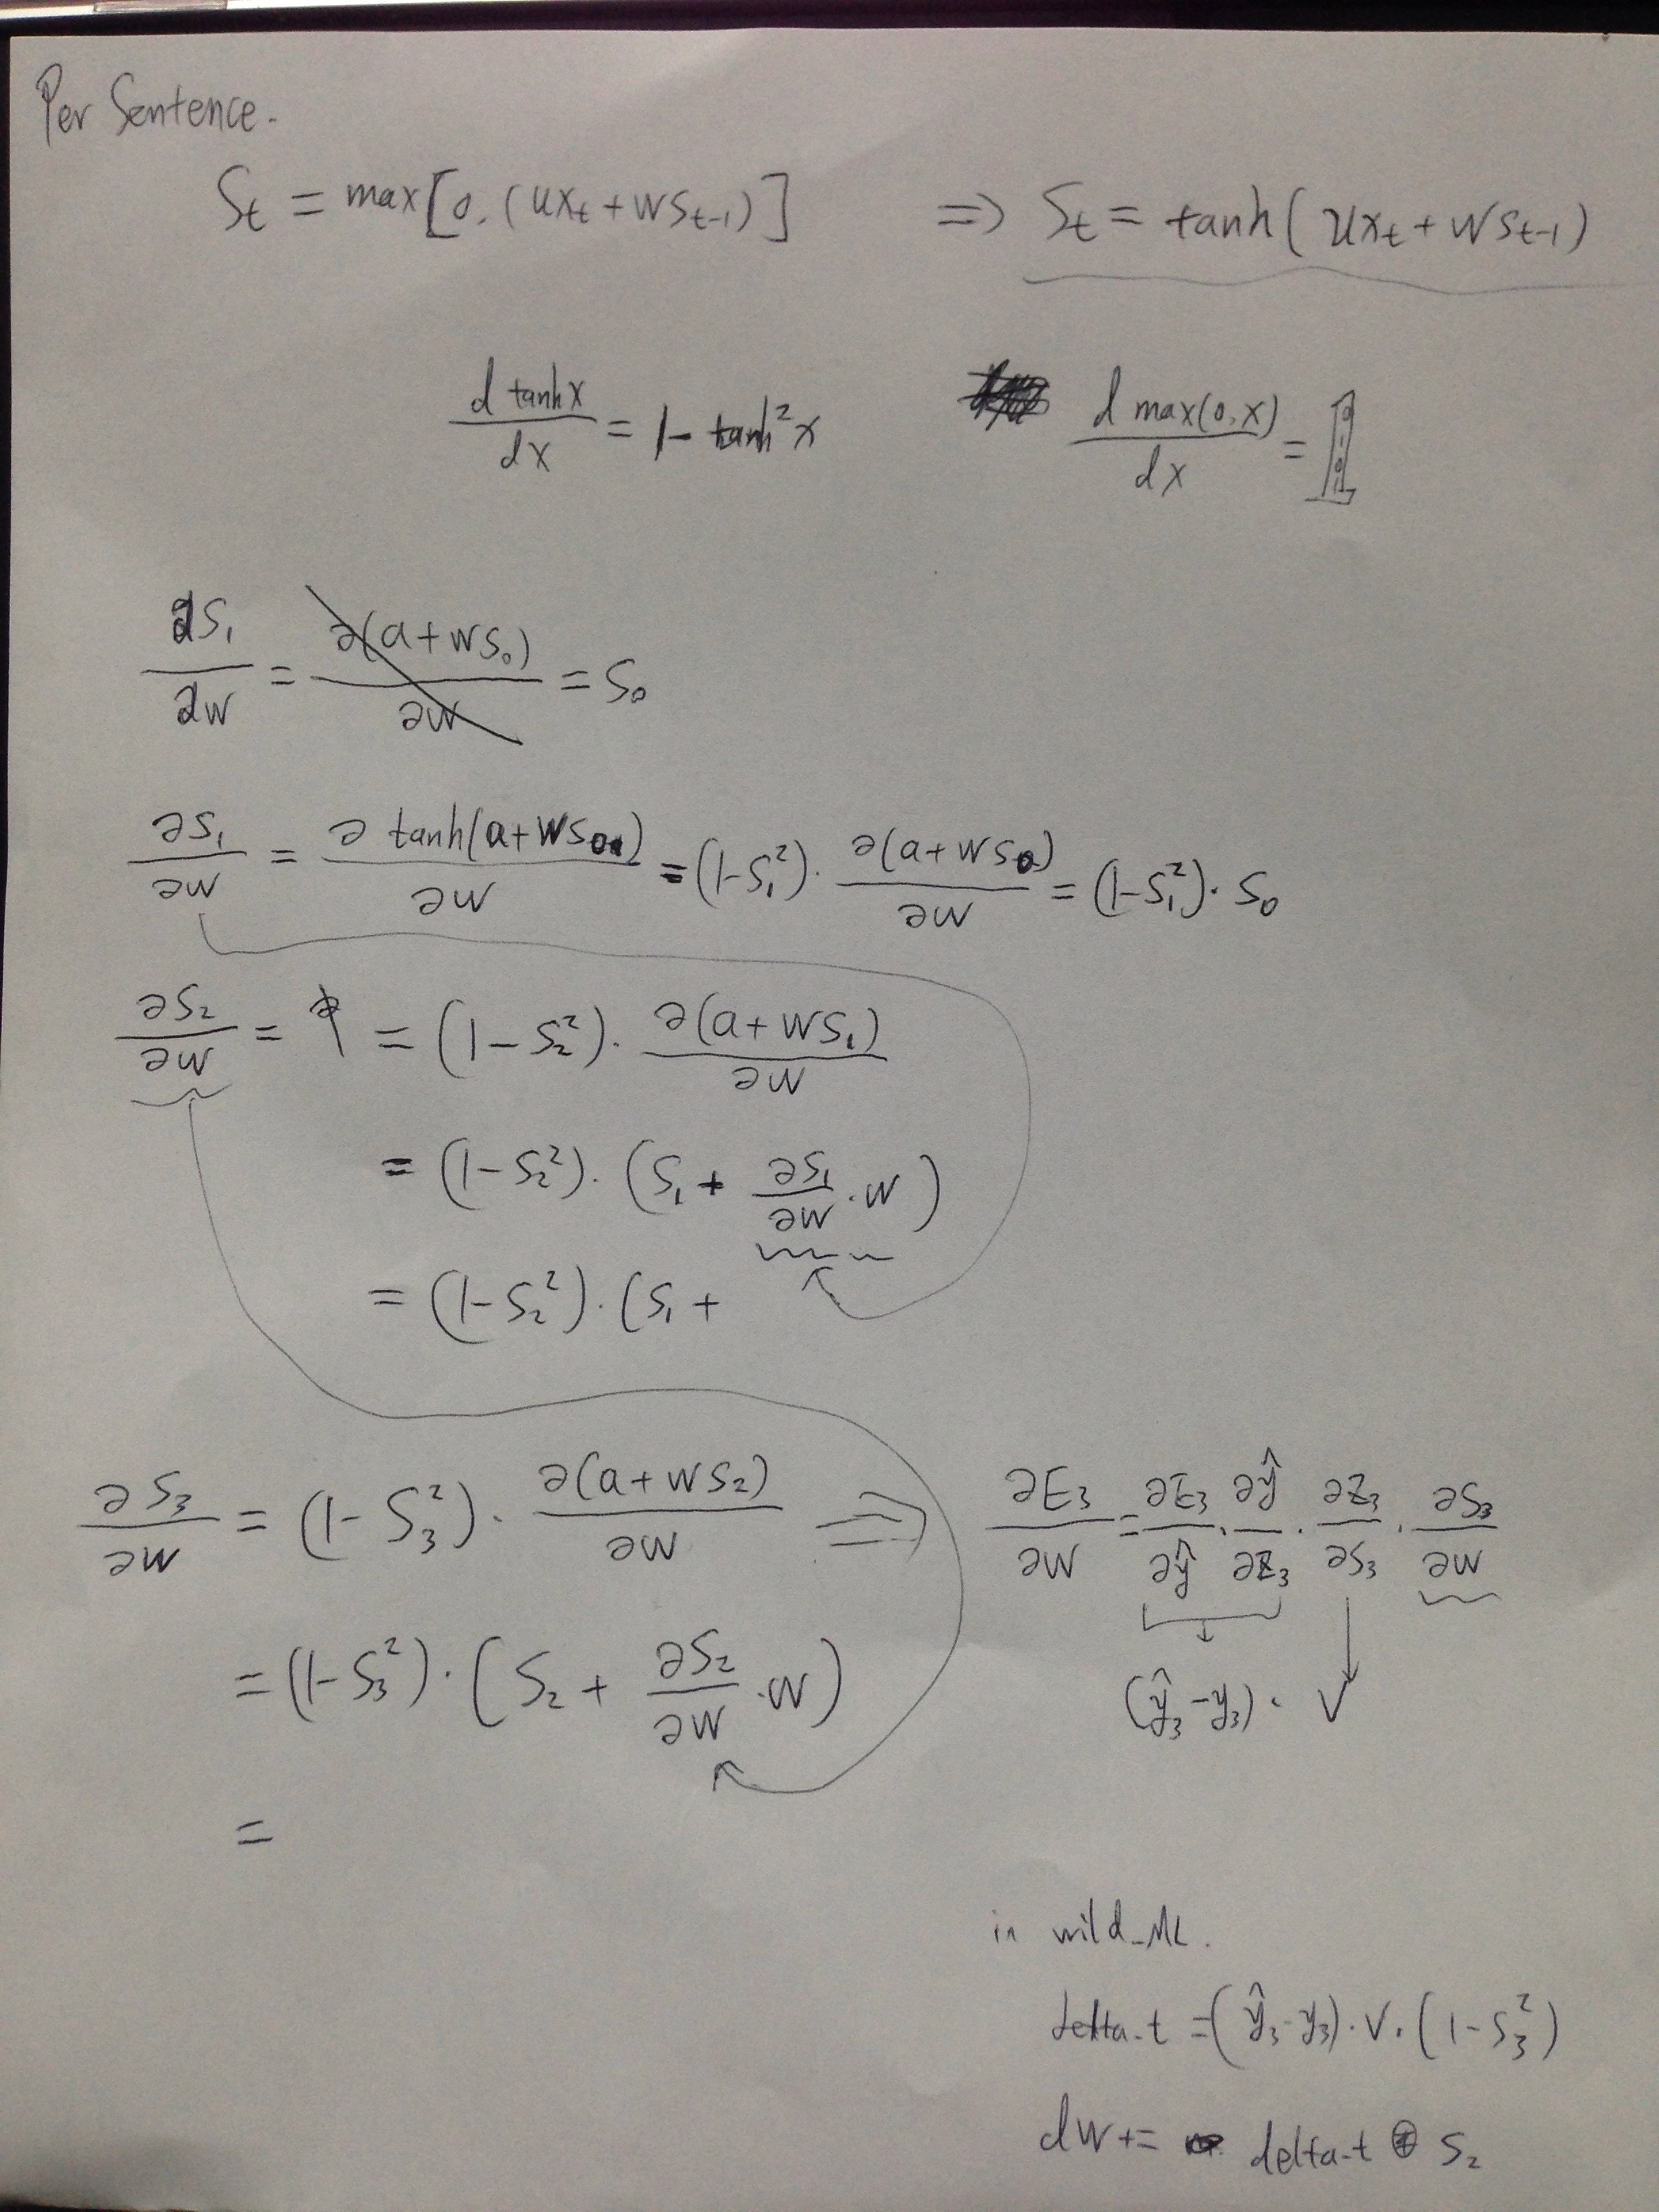 Per Sentence.
S_t = max[0, (Ux_t + WS_{t-1})] ⇒ S_t = tanh(Ux_t + WS_{t-1})
d tanh x / dx = 1 - tanh² x
d max(0, x) / dx =
∂S₁/∂W = ∂(a + WS₀)/∂W = S₀
∂S₁/∂W = ∂ tanh(a + WS₀)/∂W = (1 - S₁²) · ∂(a + WS₀)/∂W = (1 - S₁²) · S₀
∂S₂/∂W = = (1 - S₂²) · ∂(a + WS₁)/∂W
= (1 - S₂²) · (S₁ + ∂S₁/∂W · W)
= (1 - S₂²) · (S₁ +
∂S₃/∂W = (1 - S₃²) · ∂(a + WS₂)/∂W ⇒ ∂E₃/∂W = ∂E₃/∂ŷ · ∂ŷ/∂Z₃ · ∂Z₃/∂S₃ · ∂S₃/∂W
= (1 - S₃²) · (S₂ + ∂S₂/∂W · W)
(ŷ₃ - y₃) · V
=
in wild_ML.
delta_t = (ŷ₃ - y₃) · V · (1 - S₃²)
dW += delta_t ⊗ S₂